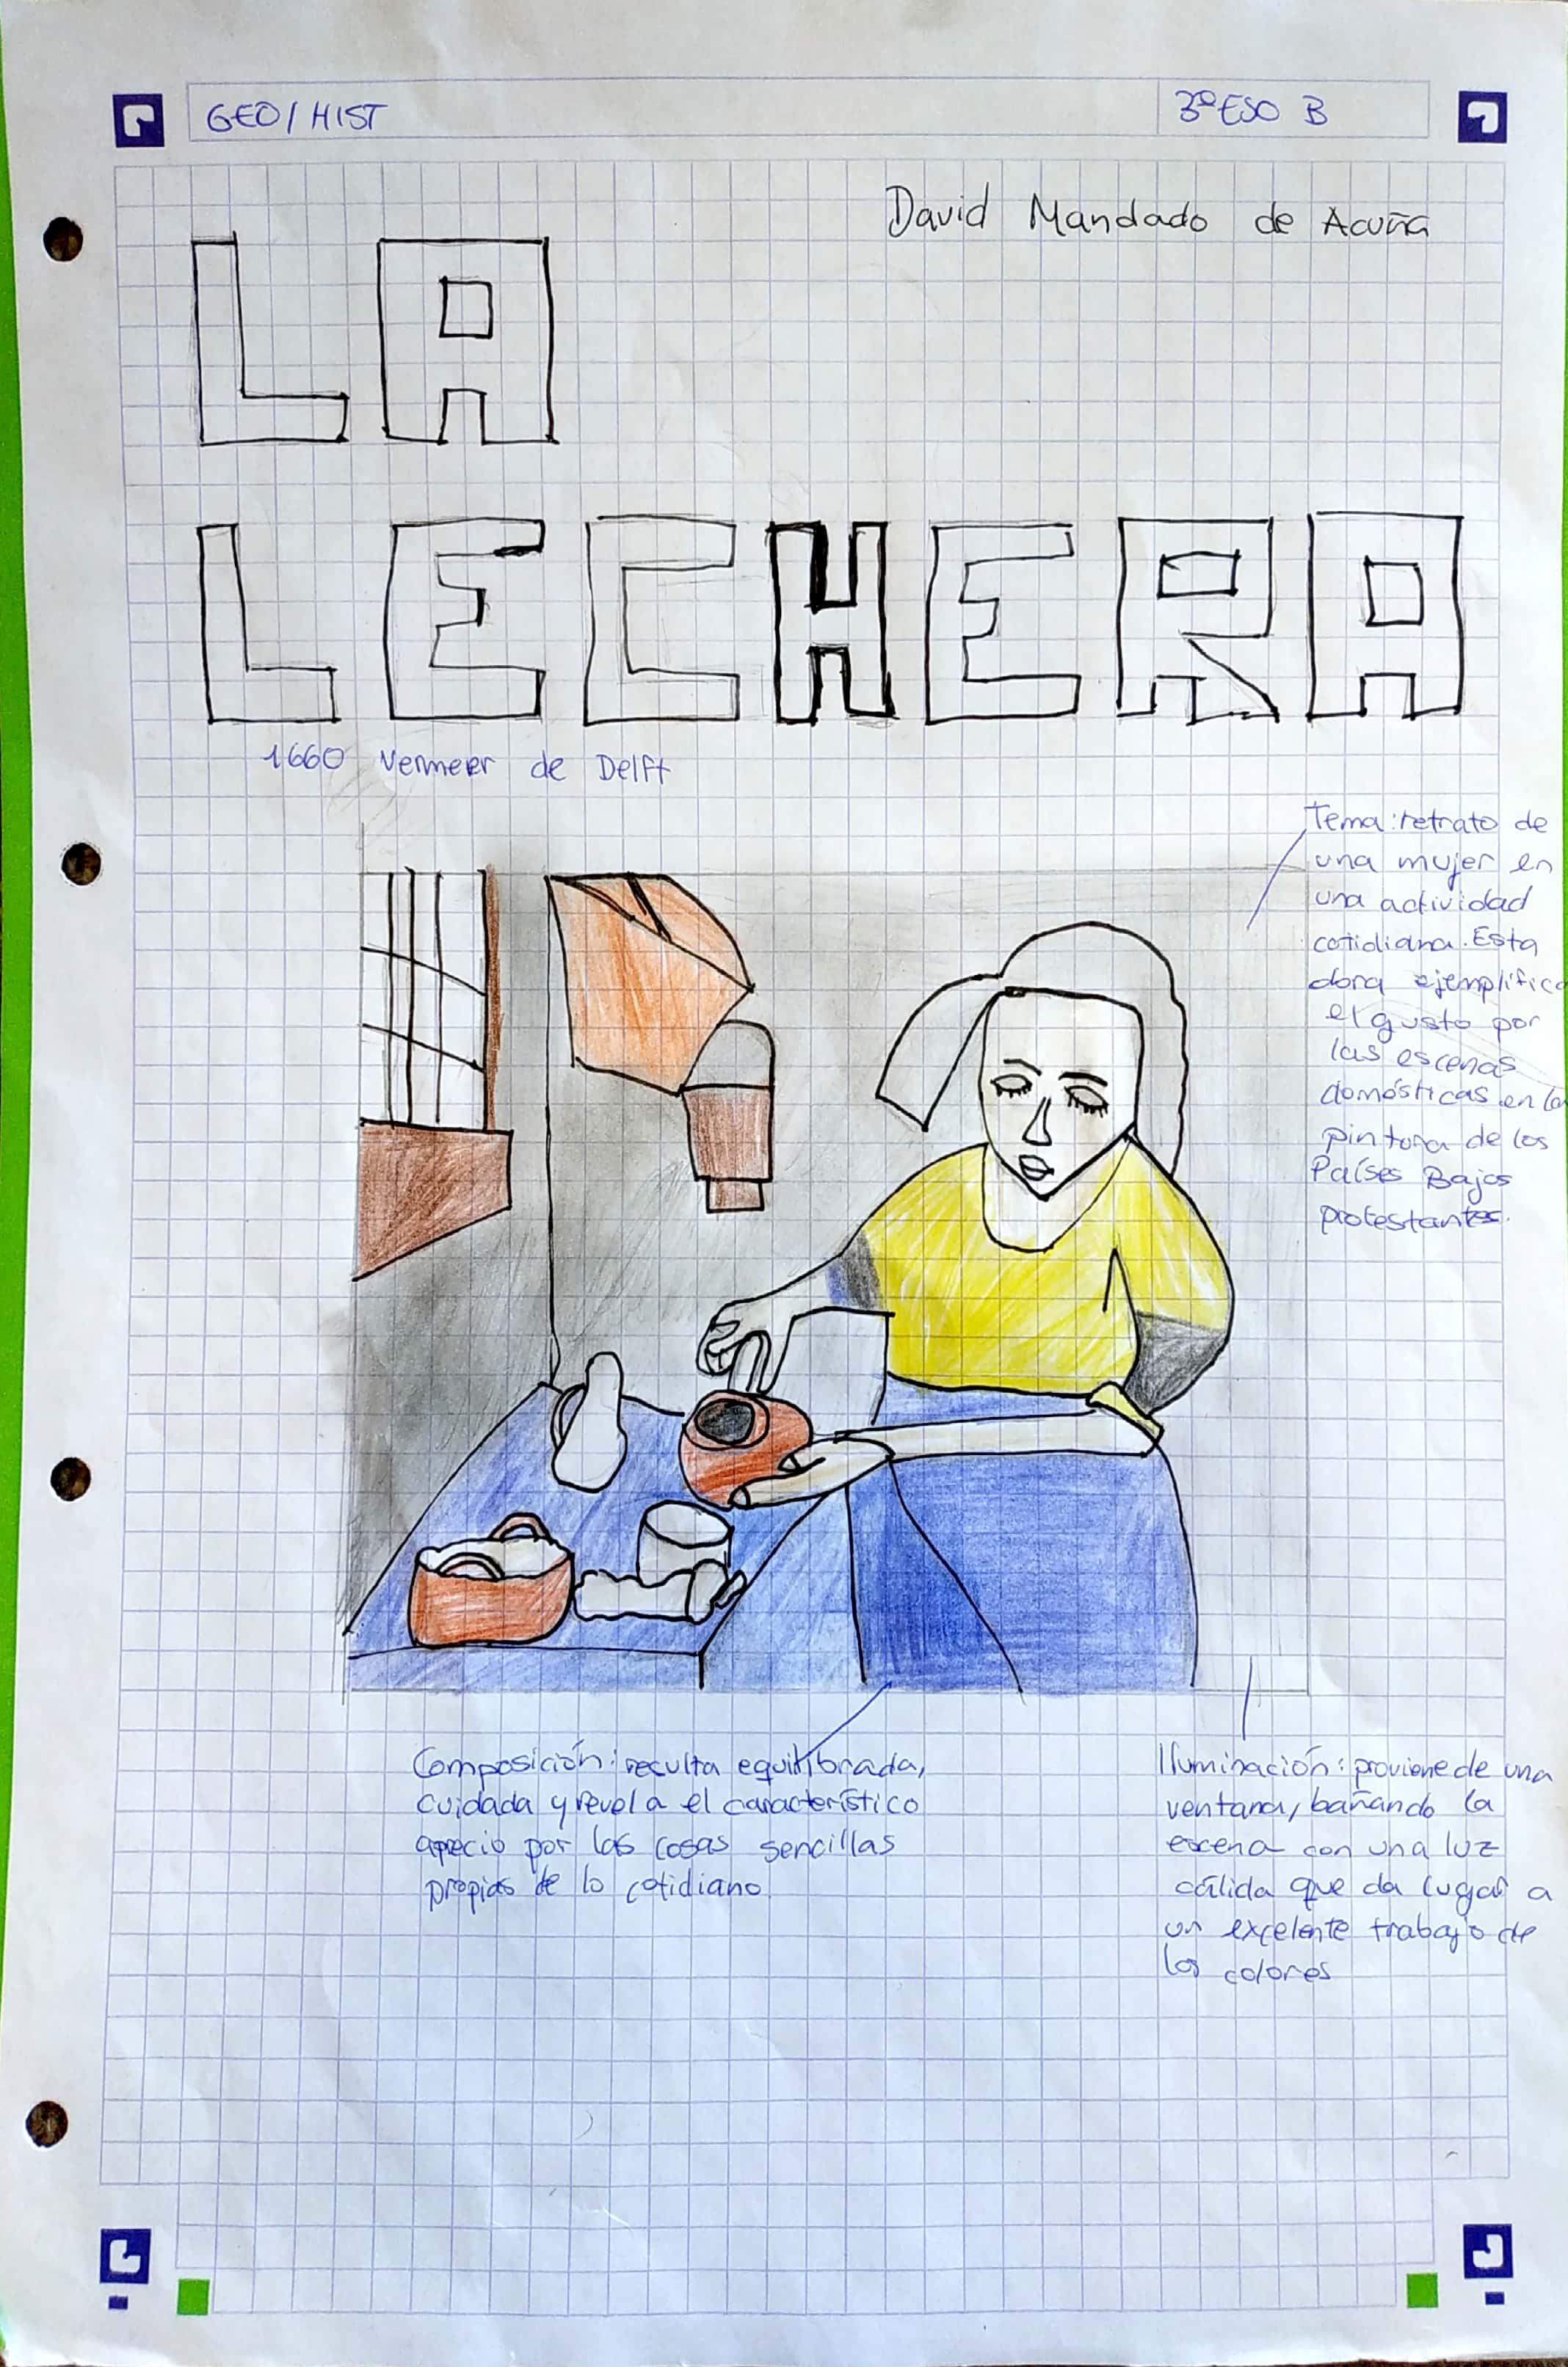 GEO/HIST
3ºESO B
David Mandado de Acuña
LA
LECHERA
1660 Vermeer de Delft
Tema: retrato de
una mujer en
una actividad
cotidiana. Esta
obra ejemplifica
el gusto por
las escenas
domésticas en la
pintura de los
Países Bajos
protestantes.
Composición: resulta equilibrada,
cuidada y revela el característico
aprecio por las cosas sencillas
propias de lo cotidiano
Iluminación: proviene de una
ventana, bañando la
escena con una luz
cálida que da lugar a
un excelente trabajo de
los colores